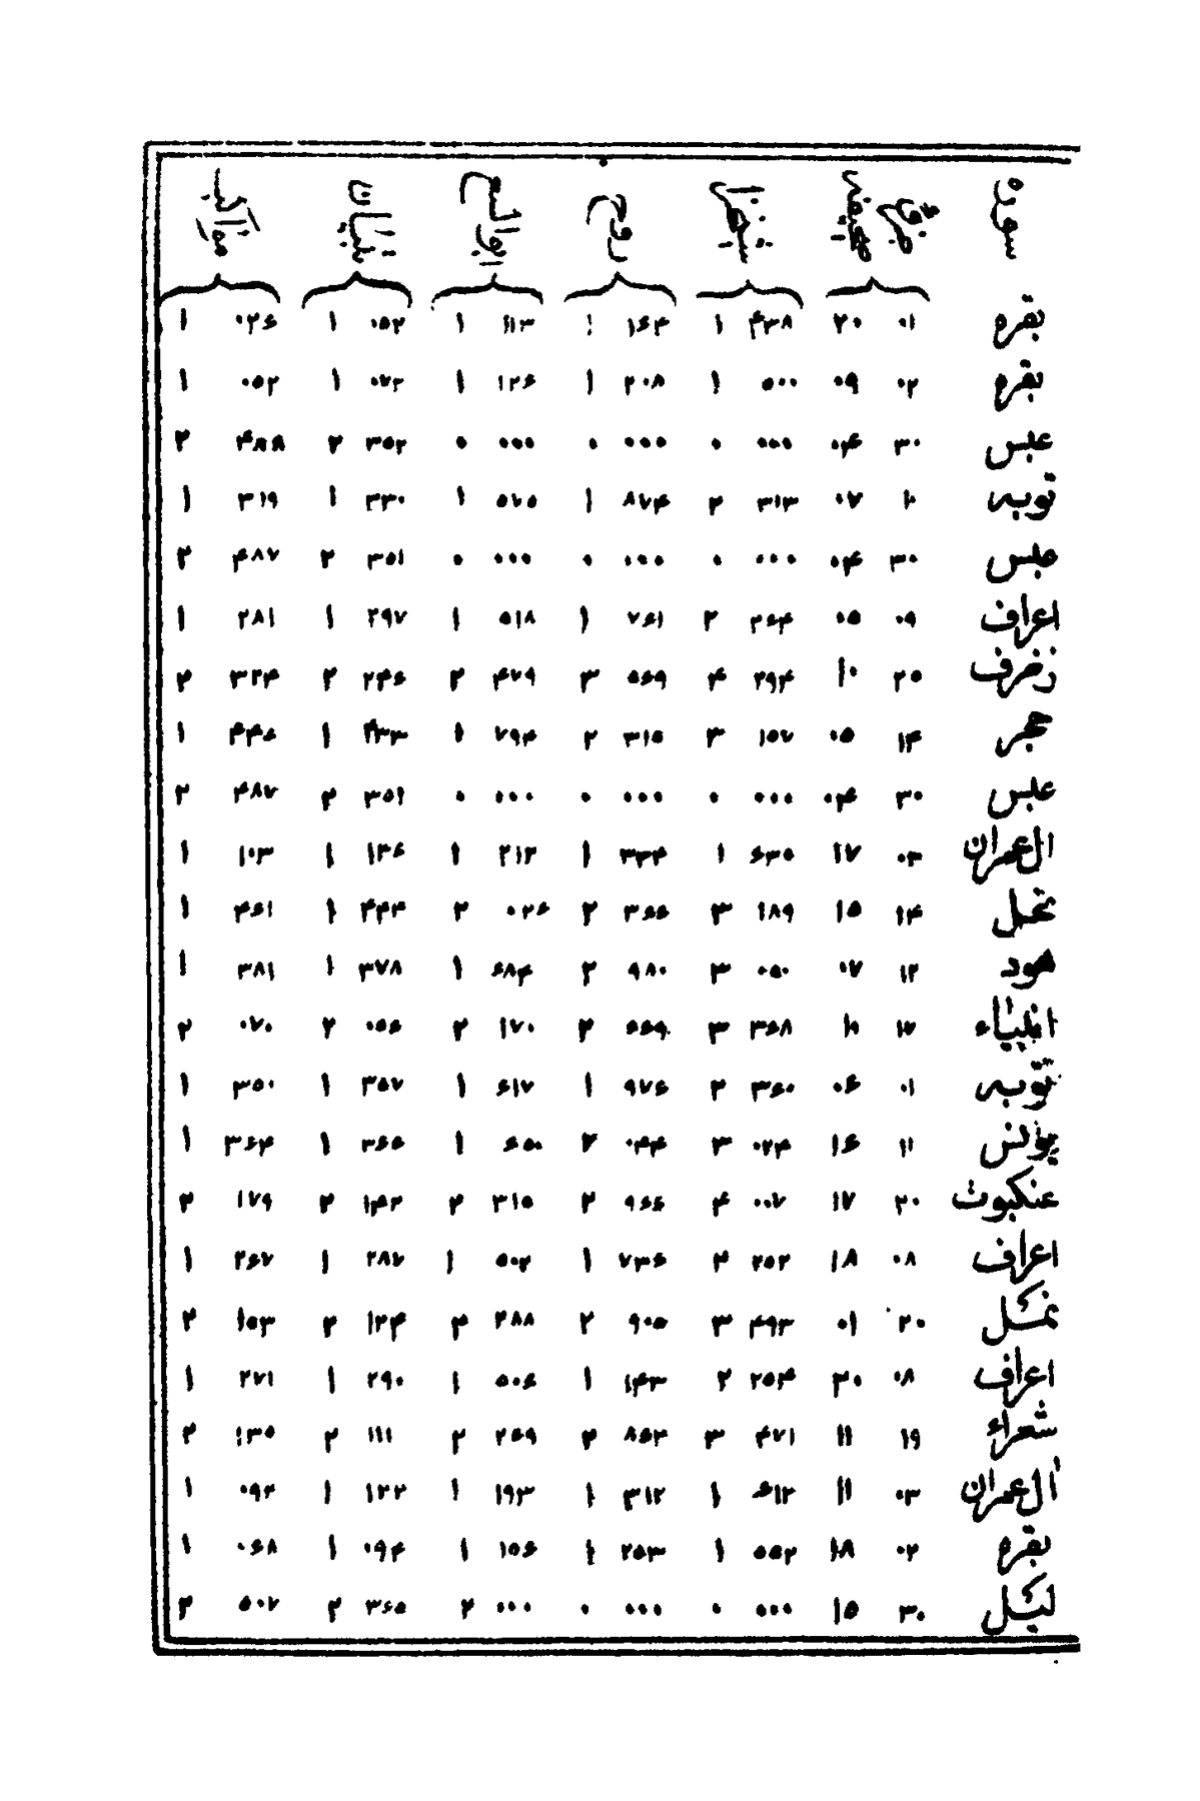 سوره جزو صحیفه شیخزاده روح ابوالسع تبیان مواکب
بقره ۰۱ ۲۰ ۴۳۸ ۱ ۱۶۴ ۱ ۱۱۳ ۱ ۰۵۲ ۱ ۰۲۶ ۱
بقره ۰۲ ۰۹ ۵۰۰ ۱ ۲۰۸ ۱ ۱۲۶ ۱ ۰۷۲ ۱ ۰۵۲ ۱
عبس ۳۰ ۰۴ ۰۰۰ ۰ ۰۰۰ ۰ ۰۰۰ ۰ ۳۵۲ ۲ ۴۸۸ ۲
توبه ۱۰ ۰۷ ۳۱۳ ۲ ۸۷۴ ۱ ۵۷۵ ۱ ۳۳۰ ۱ ۳۱۹ ۱
عبس ۳۰ ۰۴ ۰۰۰ ۰ ۰۰۰ ۰ ۰۰۰ ۰ ۳۵۱ ۲ ۴۸۷ ۲
اعراف ۰۹ ۰۵ ۲۶۴ ۲ ۷۶۱ ۱ ۵۱۸ ۱ ۲۹۷ ۱ ۲۸۱ ۱
زخرف ۲۵ ۱۰ ۲۹۴ ۴ ۵۶۹ ۳ ۴۷۹ ۲ ۲۴۶ ۲ ۳۲۴ ۲
حجر ۱۴ ۰۵ ۱۵۷ ۳ ۳۱۵ ۲ ۷۹۴ ۱ ۴۳۳ ۱ ۴۴۶ ۱
عبس ۳۰ ۰۴ ۰۰۰ ۰ ۰۰۰ ۰ ۰۰۰ ۰ ۳۵۱ ۲ ۴۸۷ ۲
ال عمران ۰۳ ۱۷ ۶۳۵ ۱ ۳۳۴ ۱ ۲۱۲ ۱ ۱۳۶ ۱ ۱۰۳ ۱
نحل ۱۴ ۱۵ ۱۸۹ ۳ ۳۶۶ ۲ ۰۲۶ ۲ ۴۴۴ ۱ ۴۶۱ ۱
هود ۱۲ ۰۷ ۰۵۰ ۳ ۹۸۰ ۲ ۶۸۴ ۱ ۳۷۸ ۱ ۳۸۱ ۱
انبیاء ۱۷ ۱۰ ۳۶۸ ۳ ۶۶۹ ۲ ۱۷۰ ۲ ۰۵۶ ۲ ۰۷۰ ۲
توبه ۰۱ ۰۶ ۳۶۰ ۲ ۹۷۶ ۱ ۶۱۷ ۱ ۳۵۷ ۱ ۳۵۰ ۱
یونس ۱۱ ۱۶ ۰۲۴ ۳ ۰۴۴ ۲ ۶۵۰ ۱ ۳۶۶ ۱ ۳۶۴ ۱
عنکبوت ۲۰ ۱۷ ۰۰۷ ۴ ۹۶۶ ۲ ۳۱۵ ۲ ۱۴۲ ۲ ۱۷۹ ۲
اعراف ۰۸ ۱۸ ۲۵۲ ۲ ۷۳۶ ۱ ۵۰۲ ۱ ۲۸۷ ۱ ۲۶۷ ۱
نمل ۲۰ ۰۱ ۴۹۳ ۳ ۹۰۵ ۲ ۲۸۸ ۲ ۱۲۴ ۲ ۱۵۳ ۲
اعراف ۰۸ ۳۰ ۲۵۴ ۲ ۱۴۳ ۱ ۵۰۶ ۱ ۲۹۰ ۱ ۲۷۱ ۱
شعراء ۱۹ ۱۱ ۴۷۱ ۳ ۸۶۳ ۲ ۲۶۹ ۲ ۱۱۱ ۲ ۱۳۵ ۲
أل عمران ۰۳ ۱۱ ۶۱۲ ۱ ۳۱۲ ۱ ۱۹۳ ۱ ۱۲۲ ۱ ۰۹۴ ۱
بقره ۰۲ ۱۸ ۵۵۲ ۱ ۲۵۳ ۱ ۱۵۶ ۱ ۰۹۴ ۱ ۰۶۸ ۱
لیل ۳۰ ۱۵ ۰۰۰ ۰ ۰۰۰ ۰ ۰۰۰ ۲ ۳۶۵ ۲ ۵۰۷ ۲